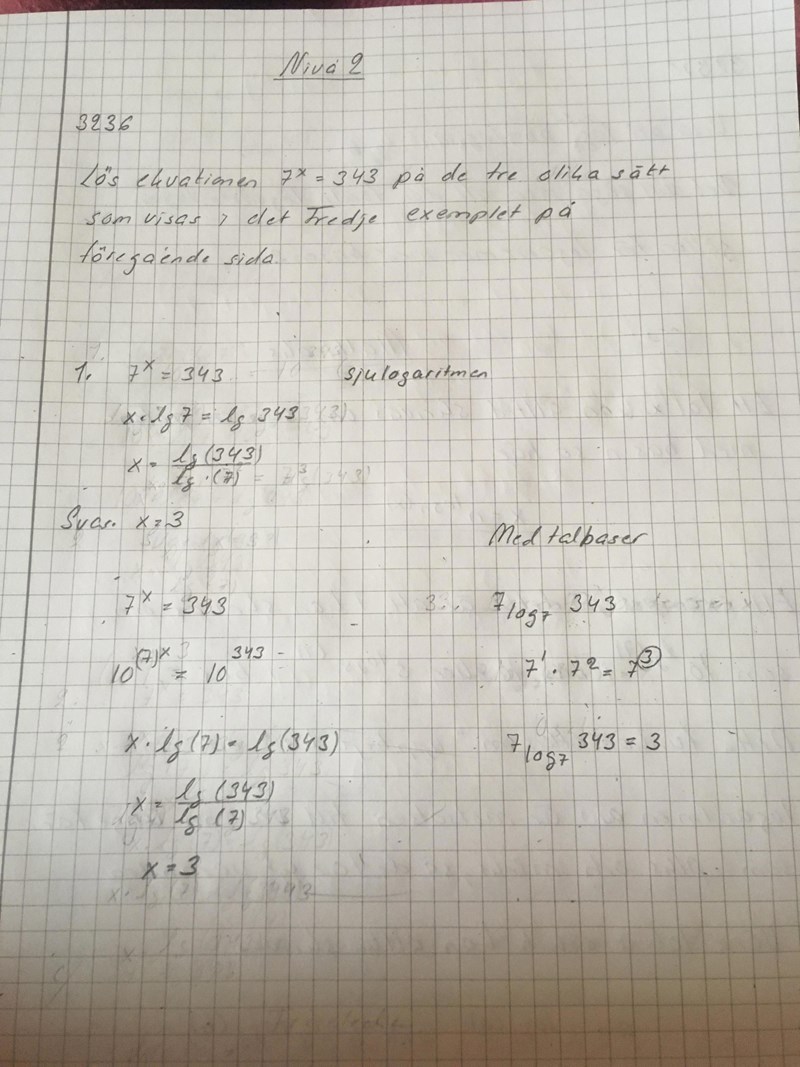 Nivå 2
3236
Lös ekvationen 7^x = 343 på de tre olika sätt
som visas i det Tredje exemplet på
föregående sida.
1. 7^x = 343 sjulogaritmen
x · lg 7 = lg 343
x = lg (343) / lg · (7)
Svar. x = 3
Med talbaser
7^x = 343
10^(7)^x = 10^343
x · lg (7) = lg (343)
x = lg (343) / lg (7)
x = 3
3.. 7 log_7 343
7^1 · 7^2 = 7^3
7 log_7 343 = 3